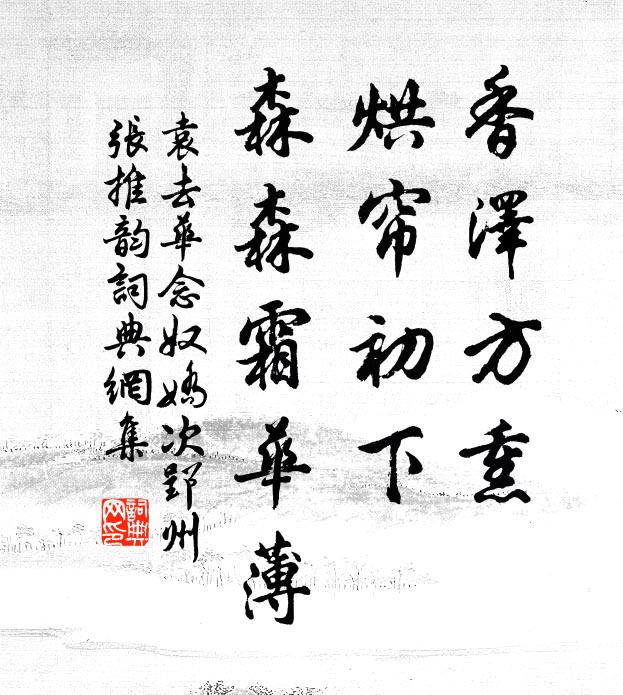 香澤方熏
烘帘初下
森森霜華薄
袁去華念奴嬌次郢州
張推韵詞典網集
詞典
网印